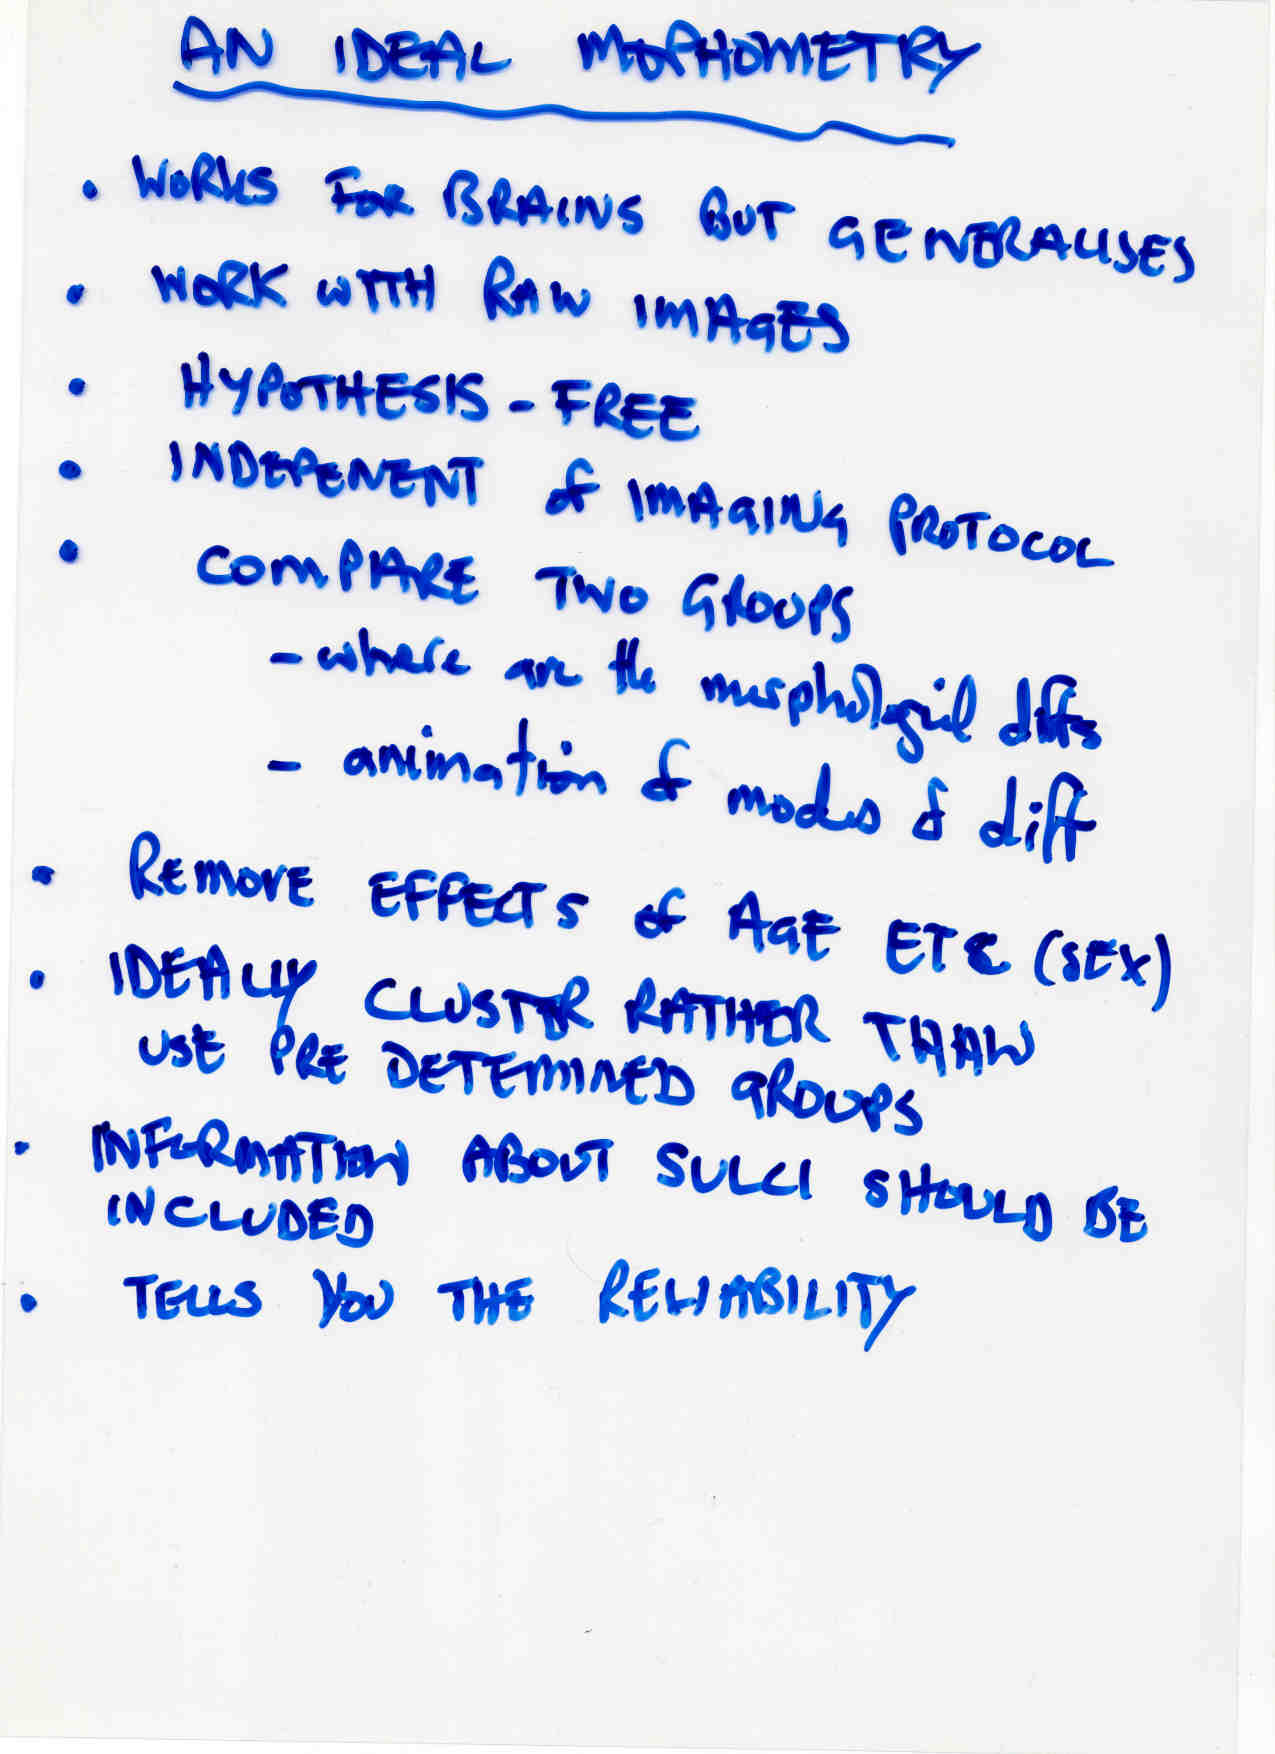 AN IDEAL MOPHOMETRY
• WORKS FOR BRAINS BUT GENERALISES
• WORK WITH RAW IMAGES
• HYPOTHESIS - FREE
• INDEPENENT of IMAGING PROTOCOL
• COMPARE TWO GROUPS
- where are the morphological diffs
- animation of modes of diff
• REMOVE EFFECTS of AGE ETC (SEX)
• IDEALLY CLUSTER RATHER THAN
USE PRE DETEMINED GROUPS
• INFORMATION ABOUT SULCI SHOULD BE
INCLUDED
• TELLS YOU THE RELIABILITY